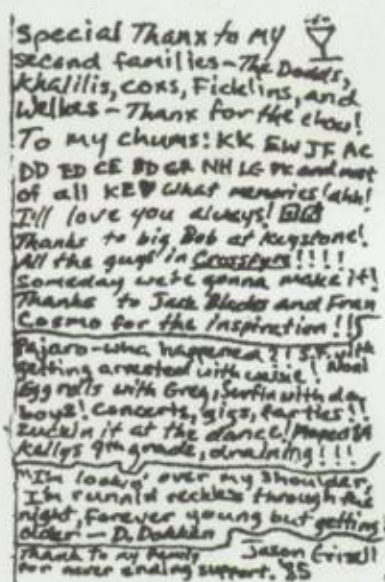 Special Thanx to my
second families - The Dodds,
Khalilis, Coxs, Ficklins, and
- Thanx for the chow!
To my chums: KK EW JF AC
DD ED CE BD GR NH LG PK and most
of all KE♥ What memories! ahh!
I'll love you always!
Thanks to big Bob at Keystone!
All the guys in Crossfyre!!!!
someday we're gonna make it!
Thanks to Jack Blades and Fran
Cosmo for the inspiration!!
Pajaro-wha happened?! S.F. with
getting arrested with Noel
Eggrolls with Greg, Surfin with da
boys! Concerts, gigs, parties!!
it at the dance!
Kellys 9th grade, draining!!!
"I'm lookin' over my shoulder,
I'm runnin' reckless through the
night, forever young but getting
older - D. Dokken
Thanks to my family
for never ending support.
Jason '85